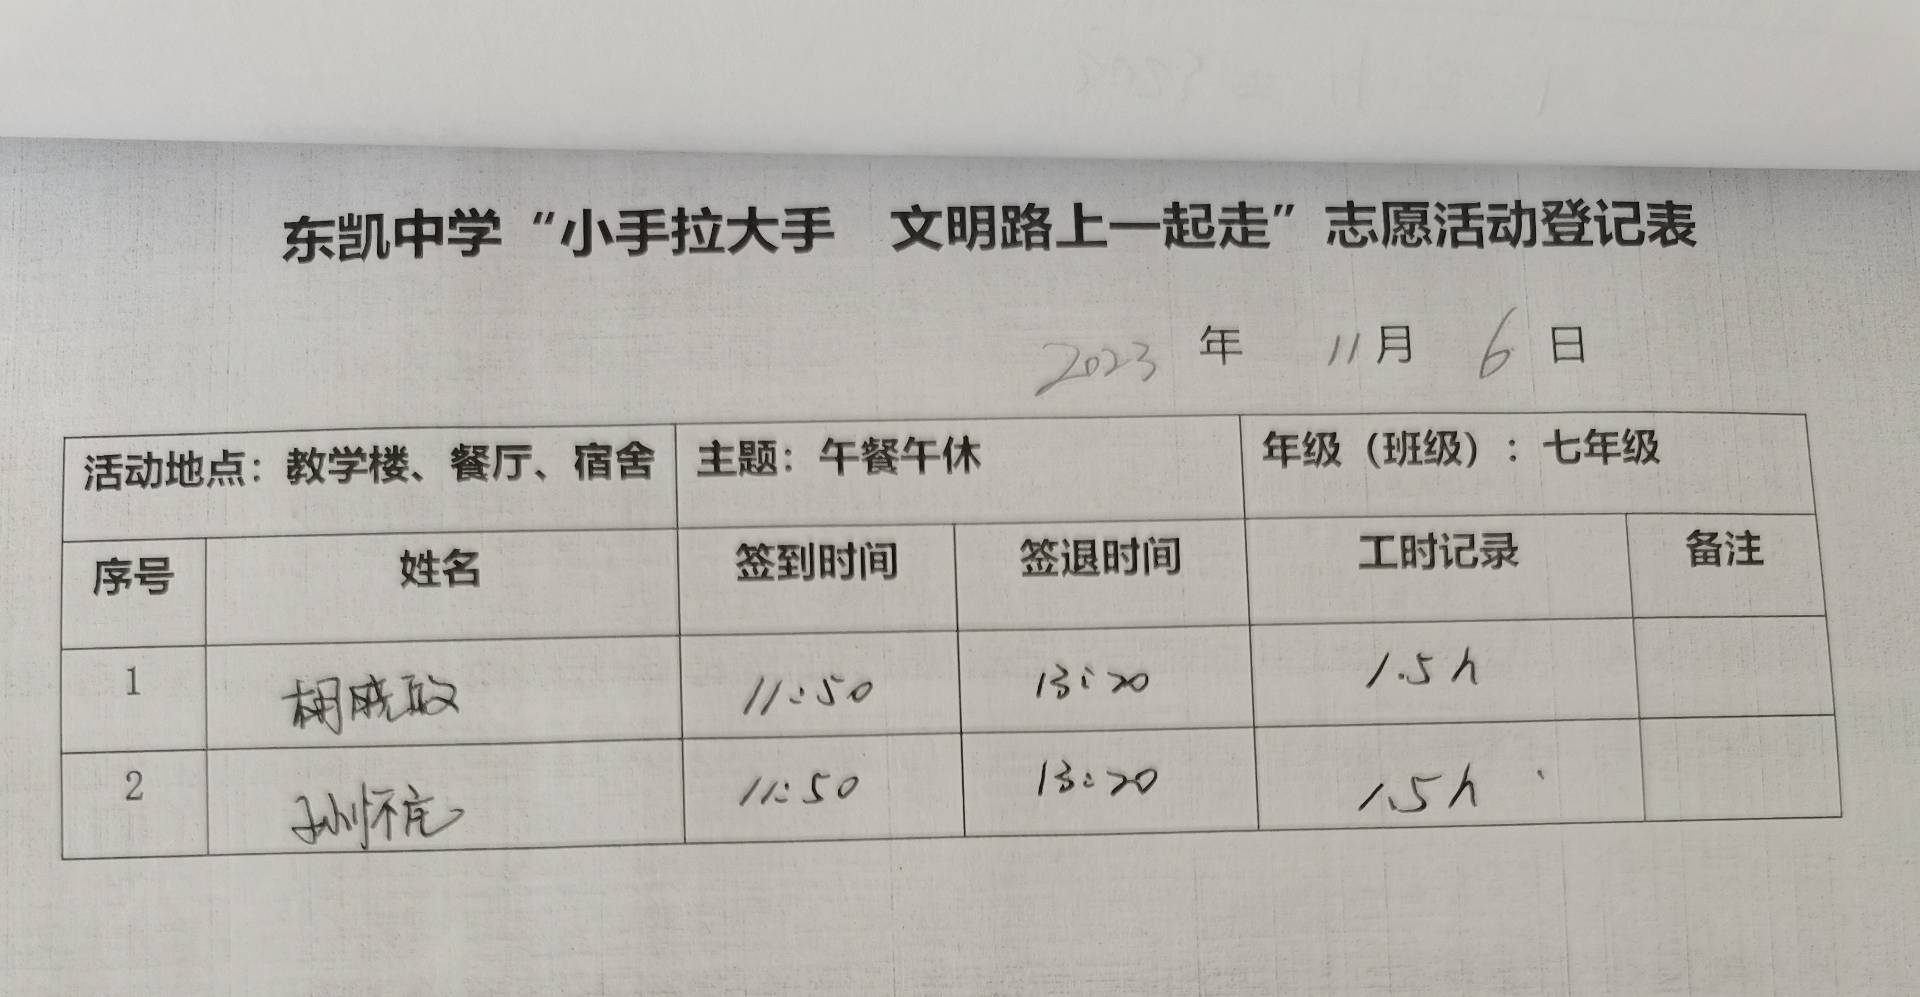 东凯中学“小手拉大手 文明路上一起走”志愿活动登记表
2023 年 11月 6 日
活动地点：教学楼、餐厅、宿舍 主题：午餐午休 年级（班级）：七年级
序号 姓名 签到时间 签退时间 工时记录 备注
1 胡晓敏 11:50 13:20 1.5h
2 11:50 13:20 1.5h